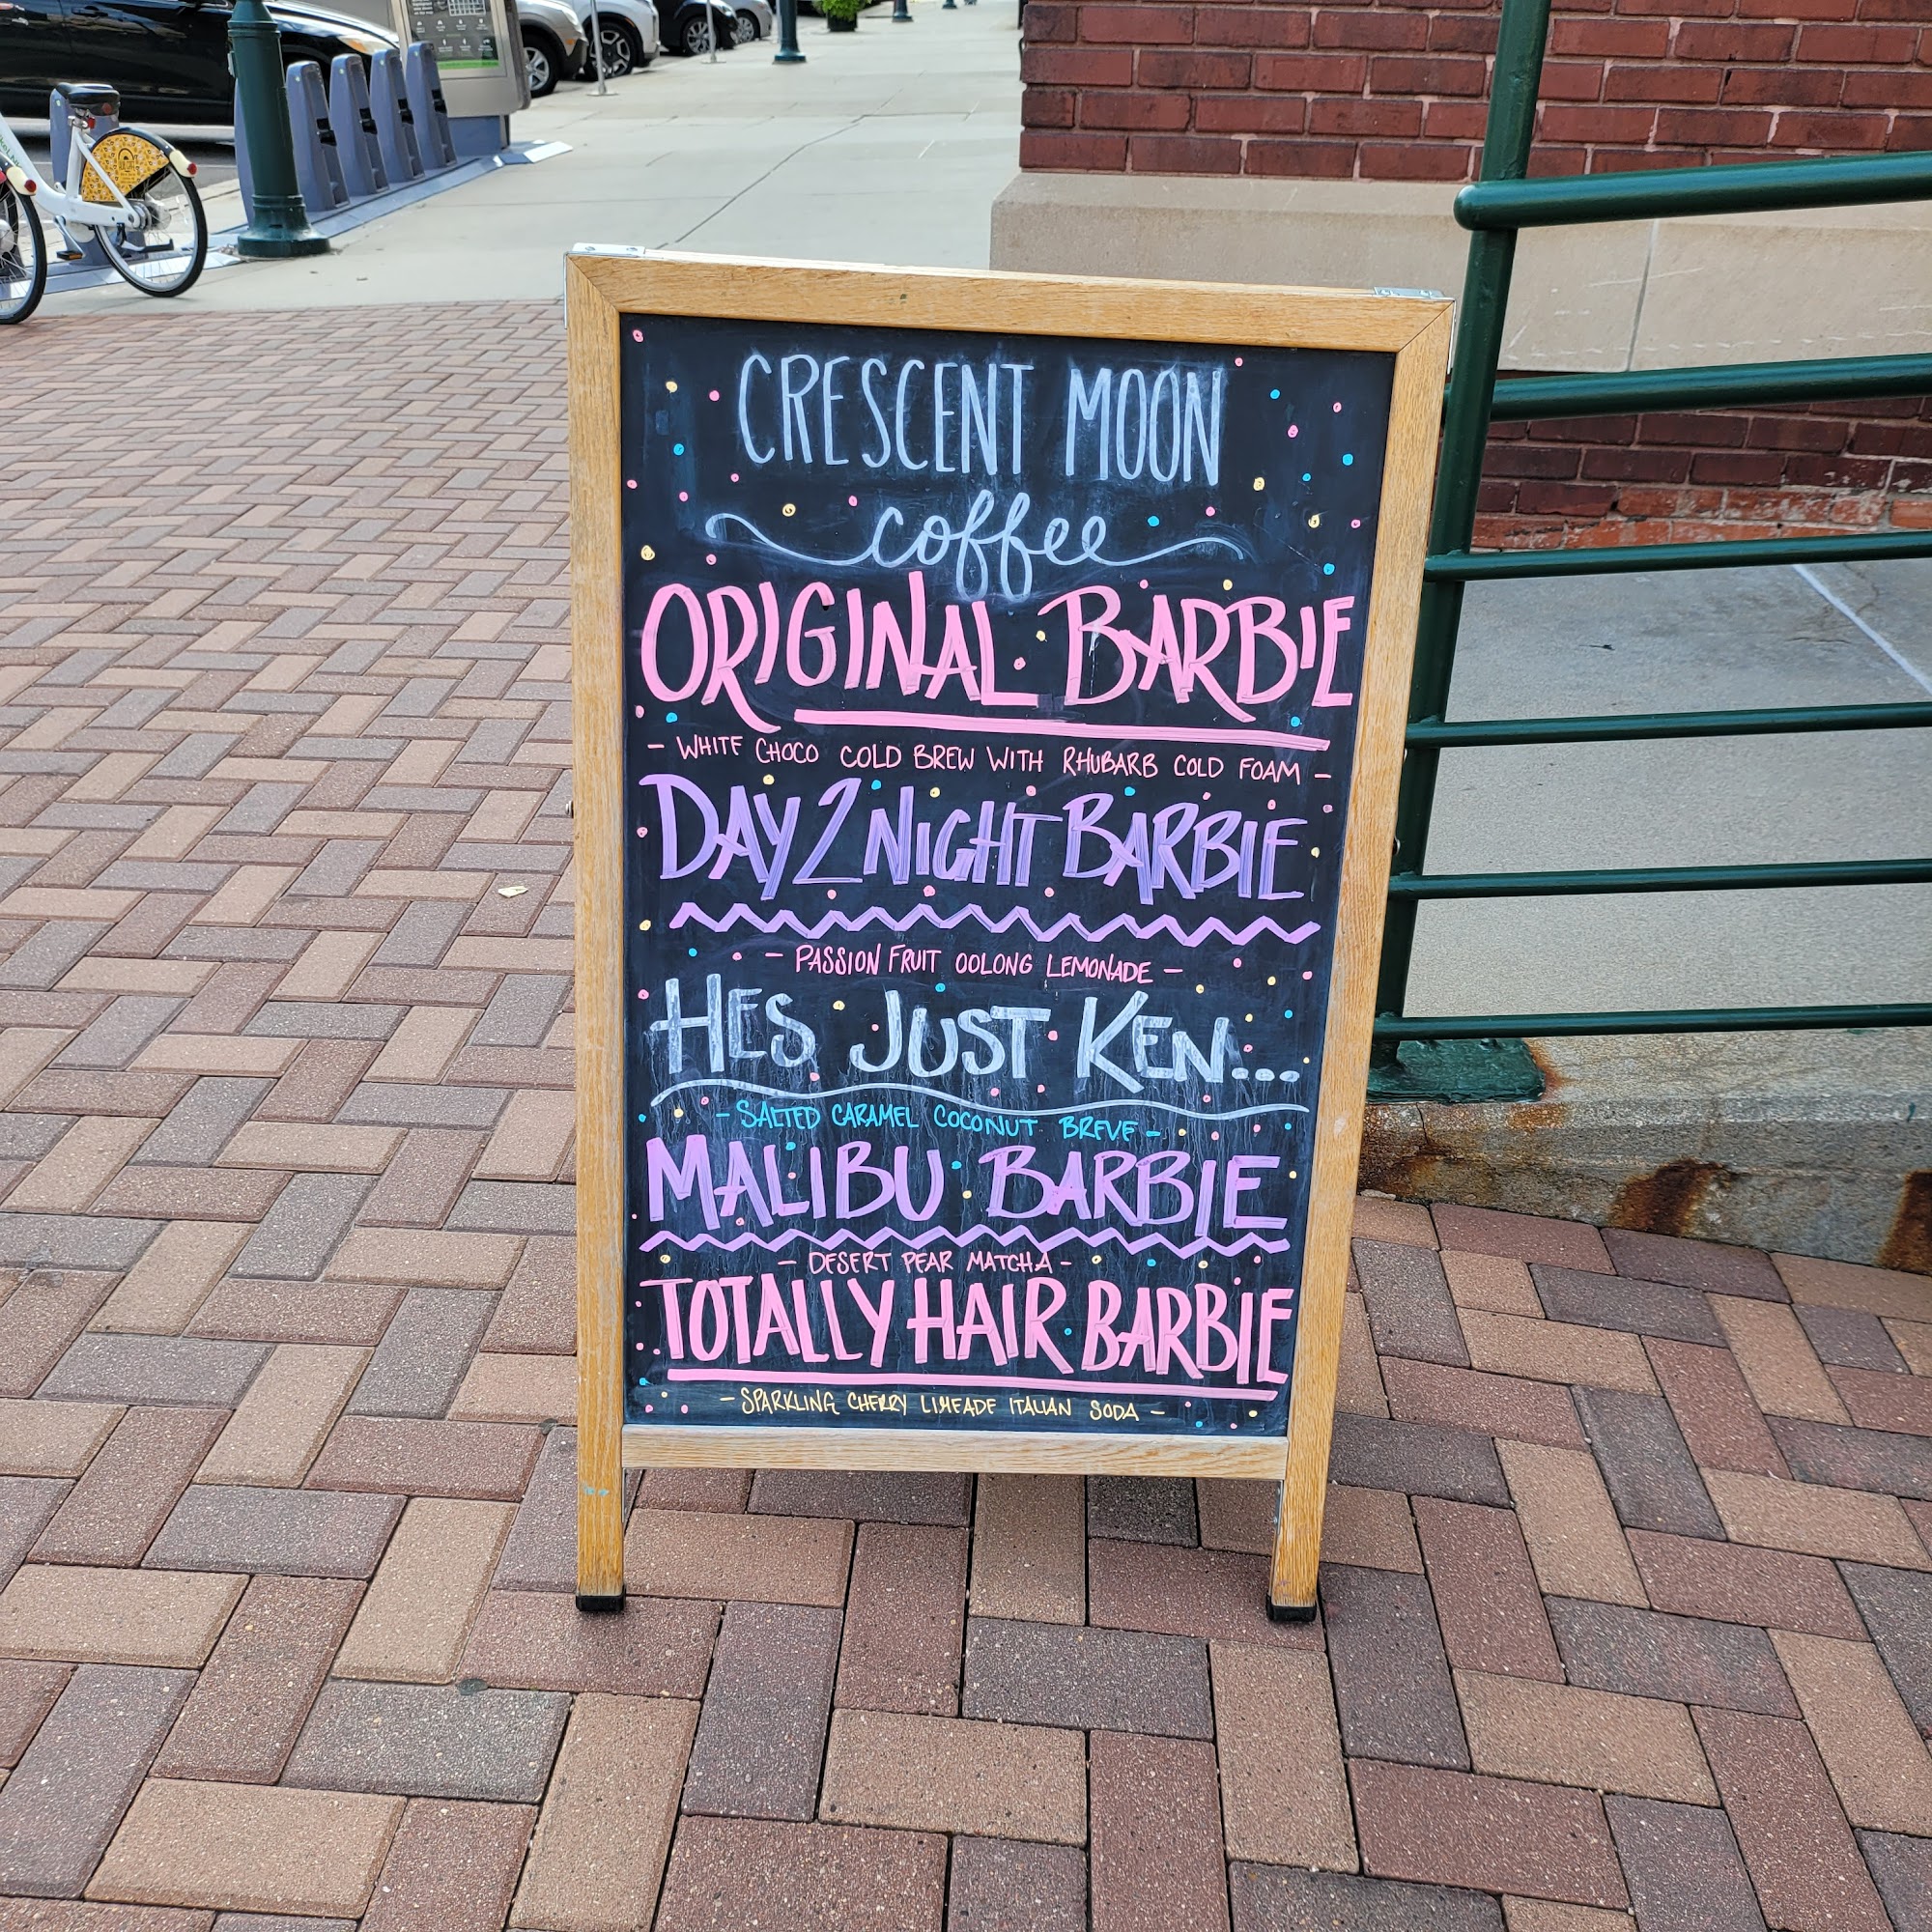 CRESCENT MOON
coffee
ORIGINAL BARBIE
- WHITE CHOCO COLD BREW WITH RHUBARB COLD FOAM -
DAY 2 NIGHT BARBIE
- PASSION FRUIT OOLONG LEMONADE -
HES JUST KEN...
- SALTED CARAMEL COCONUT BREVE -
MALIBU BARBIE
- DESERT PEAR MATCHA -
TOTALLY HAIR BARBIE
- SPARKLING CHERRY LIMEADE ITALIAN SODA -